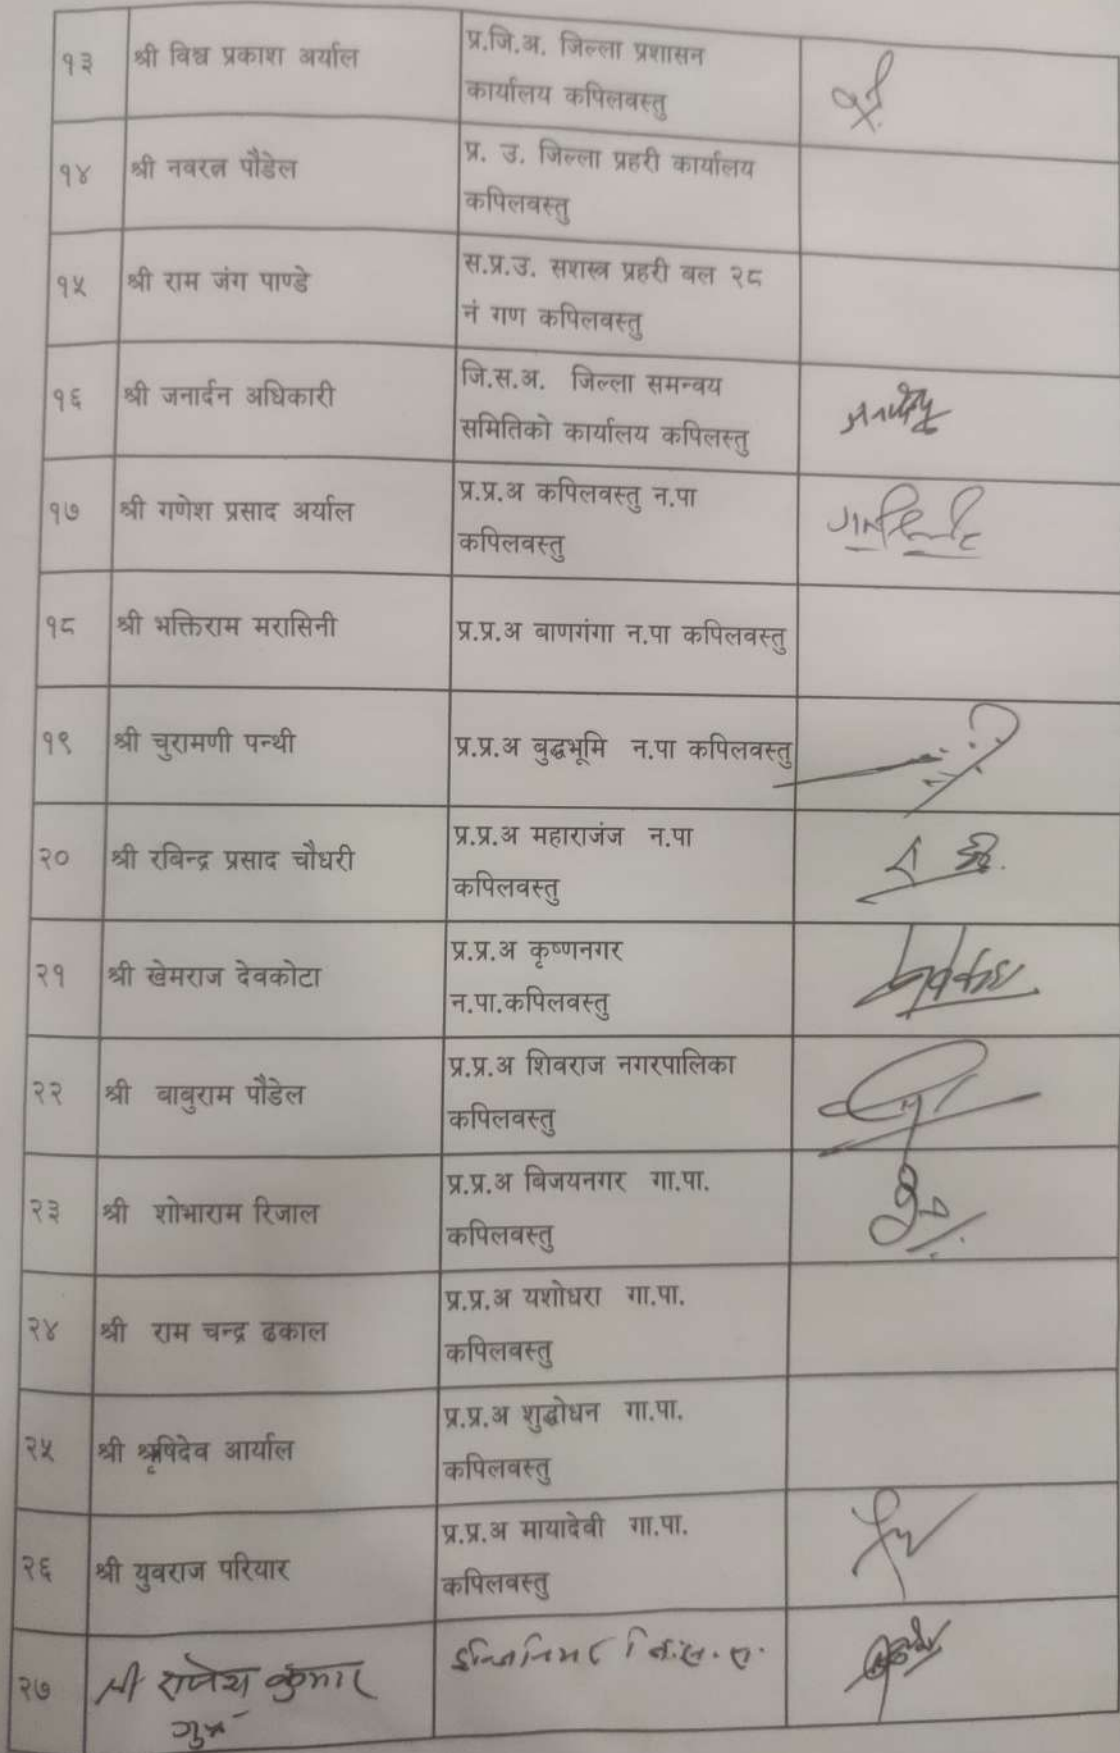 १३ श्री विश्व प्रकाश अर्याल प्र.जि.अ. जिल्ला प्रशासन
कार्यालय कपिलवस्तु
१४ श्री नवरत्न पौडेल प्र. उ. जिल्ला प्रहरी कार्यालय
कपिलवस्तु
१५ श्री राम जंग पाण्डे स.प्र.उ. सशस्त्र प्रहरी बल २८
नं गण कपिलवस्तु
१६ श्री जनार्दन अधिकारी जि.स.अ. जिल्ला समन्वय
समितिको कार्यालय कपिलस्तु
१७ श्री गणेश प्रसाद अर्याल प्र.प्र.अ कपिलवस्तु न.पा
कपिलवस्तु
१८ श्री भक्तिराम मरासिनी प्र.प्र.अ बाणगंगा न.पा कपिलवस्तु
१९ श्री चुरामणी पन्थी प्र.प्र.अ बुद्धभूमि न.पा कपिलवस्तु
२० श्री रबिन्द्र प्रसाद चौधरी प्र.प्र.अ महाराजंज न.पा
कपिलवस्तु
२१ श्री खेमराज देवकोटा प्र.प्र.अ कृष्णनगर
न.पा.कपिलवस्तु
२२ श्री बाबुराम पौडेल प्र.प्र.अ शिवराज नगरपालिका
कपिलवस्तु
२३ श्री शोभाराम रिजाल प्र.प्र.अ बिजयनगर गा.पा.
कपिलवस्तु
२४ श्री राम चन्द्र ढकाल प्र.प्र.अ यशोधरा गा.पा.
कपिलवस्तु
२५ श्री श्रृषिदेव आर्याल प्र.प्र.अ शुद्धोधन गा.पा.
कपिलवस्तु
२६ श्री युवराज परियार प्र.प्र.अ मायादेवी गा.पा.
कपिलवस्तु
२७ श्री राजेश कुमार